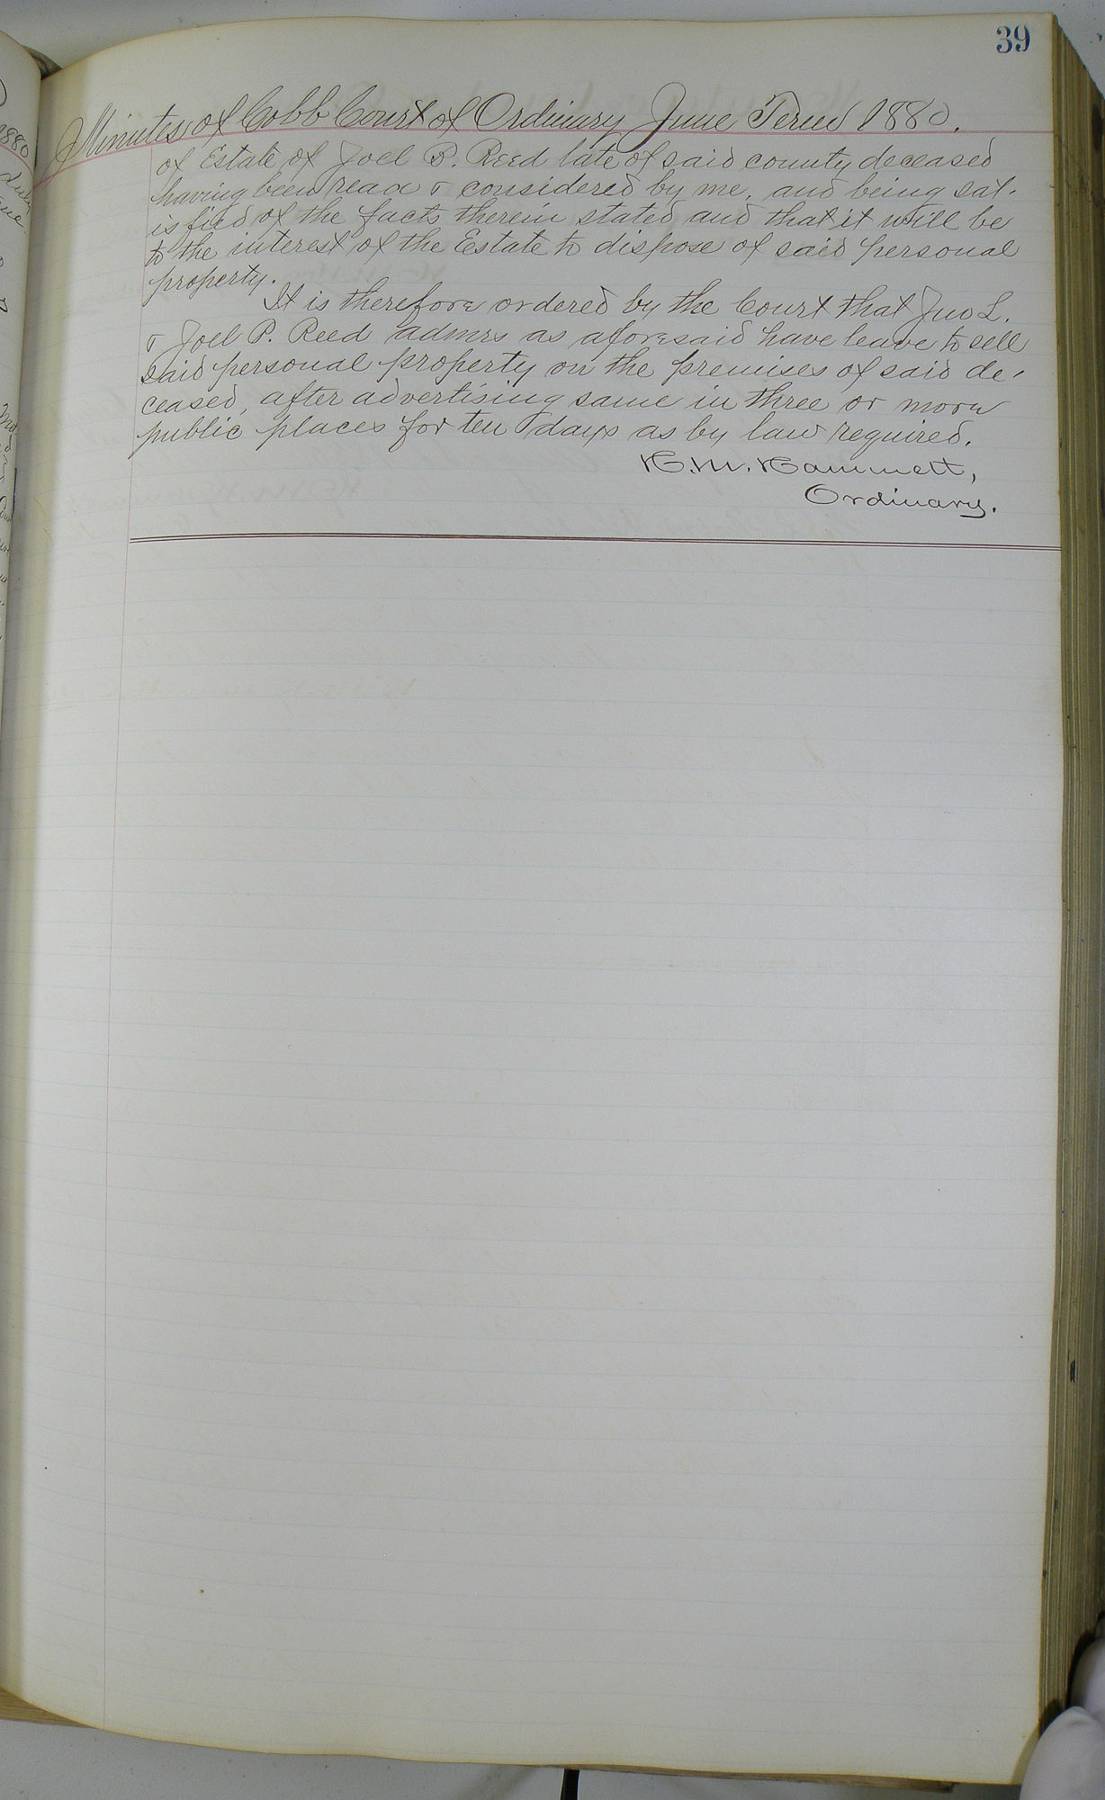 39
Minutes of Cobb Court of Ordinary June Term 1880.
of Estate of Joel B. Reed late of said county deceased
having been read & considered by me, and being sat-
isfied of the facts therein stated and that it will be
to the interest of the Eestate to dispose of said personal
property.
It is therefore ordered by the Court that Jno L.
& Joel P. Reed admrs as aforesaid have leave to sell
said personal property on the premises of said de-
ceased, after advertising same in three or more
public places for ten days as by law required.
H. M. Hammett,
Ordinary.
1880